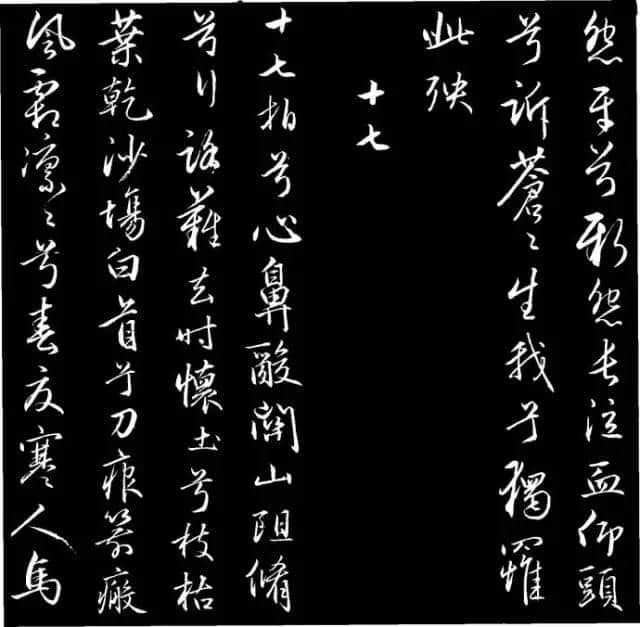 怨平兮新怨長泣血仰頭
兮訴蒼々生我兮獨罹
此殃
十七
十七拍兮心鼻酸關山阻脩
兮行路難去時懷土兮枝枯
葉乾沙場白首兮刀痕箭瘢
風霜凜々兮春夏寒人馬